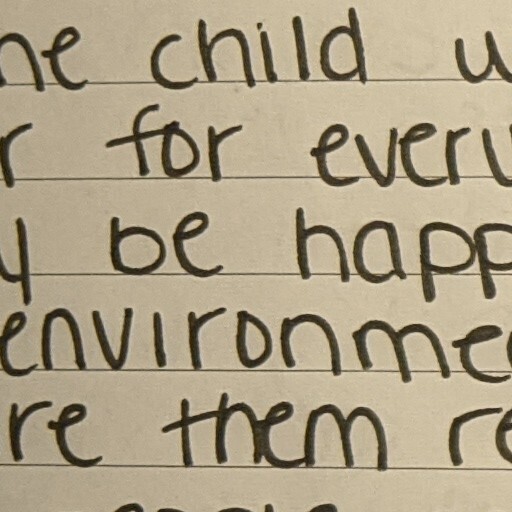 ne child w
r for every
y be happ
environme
re them re